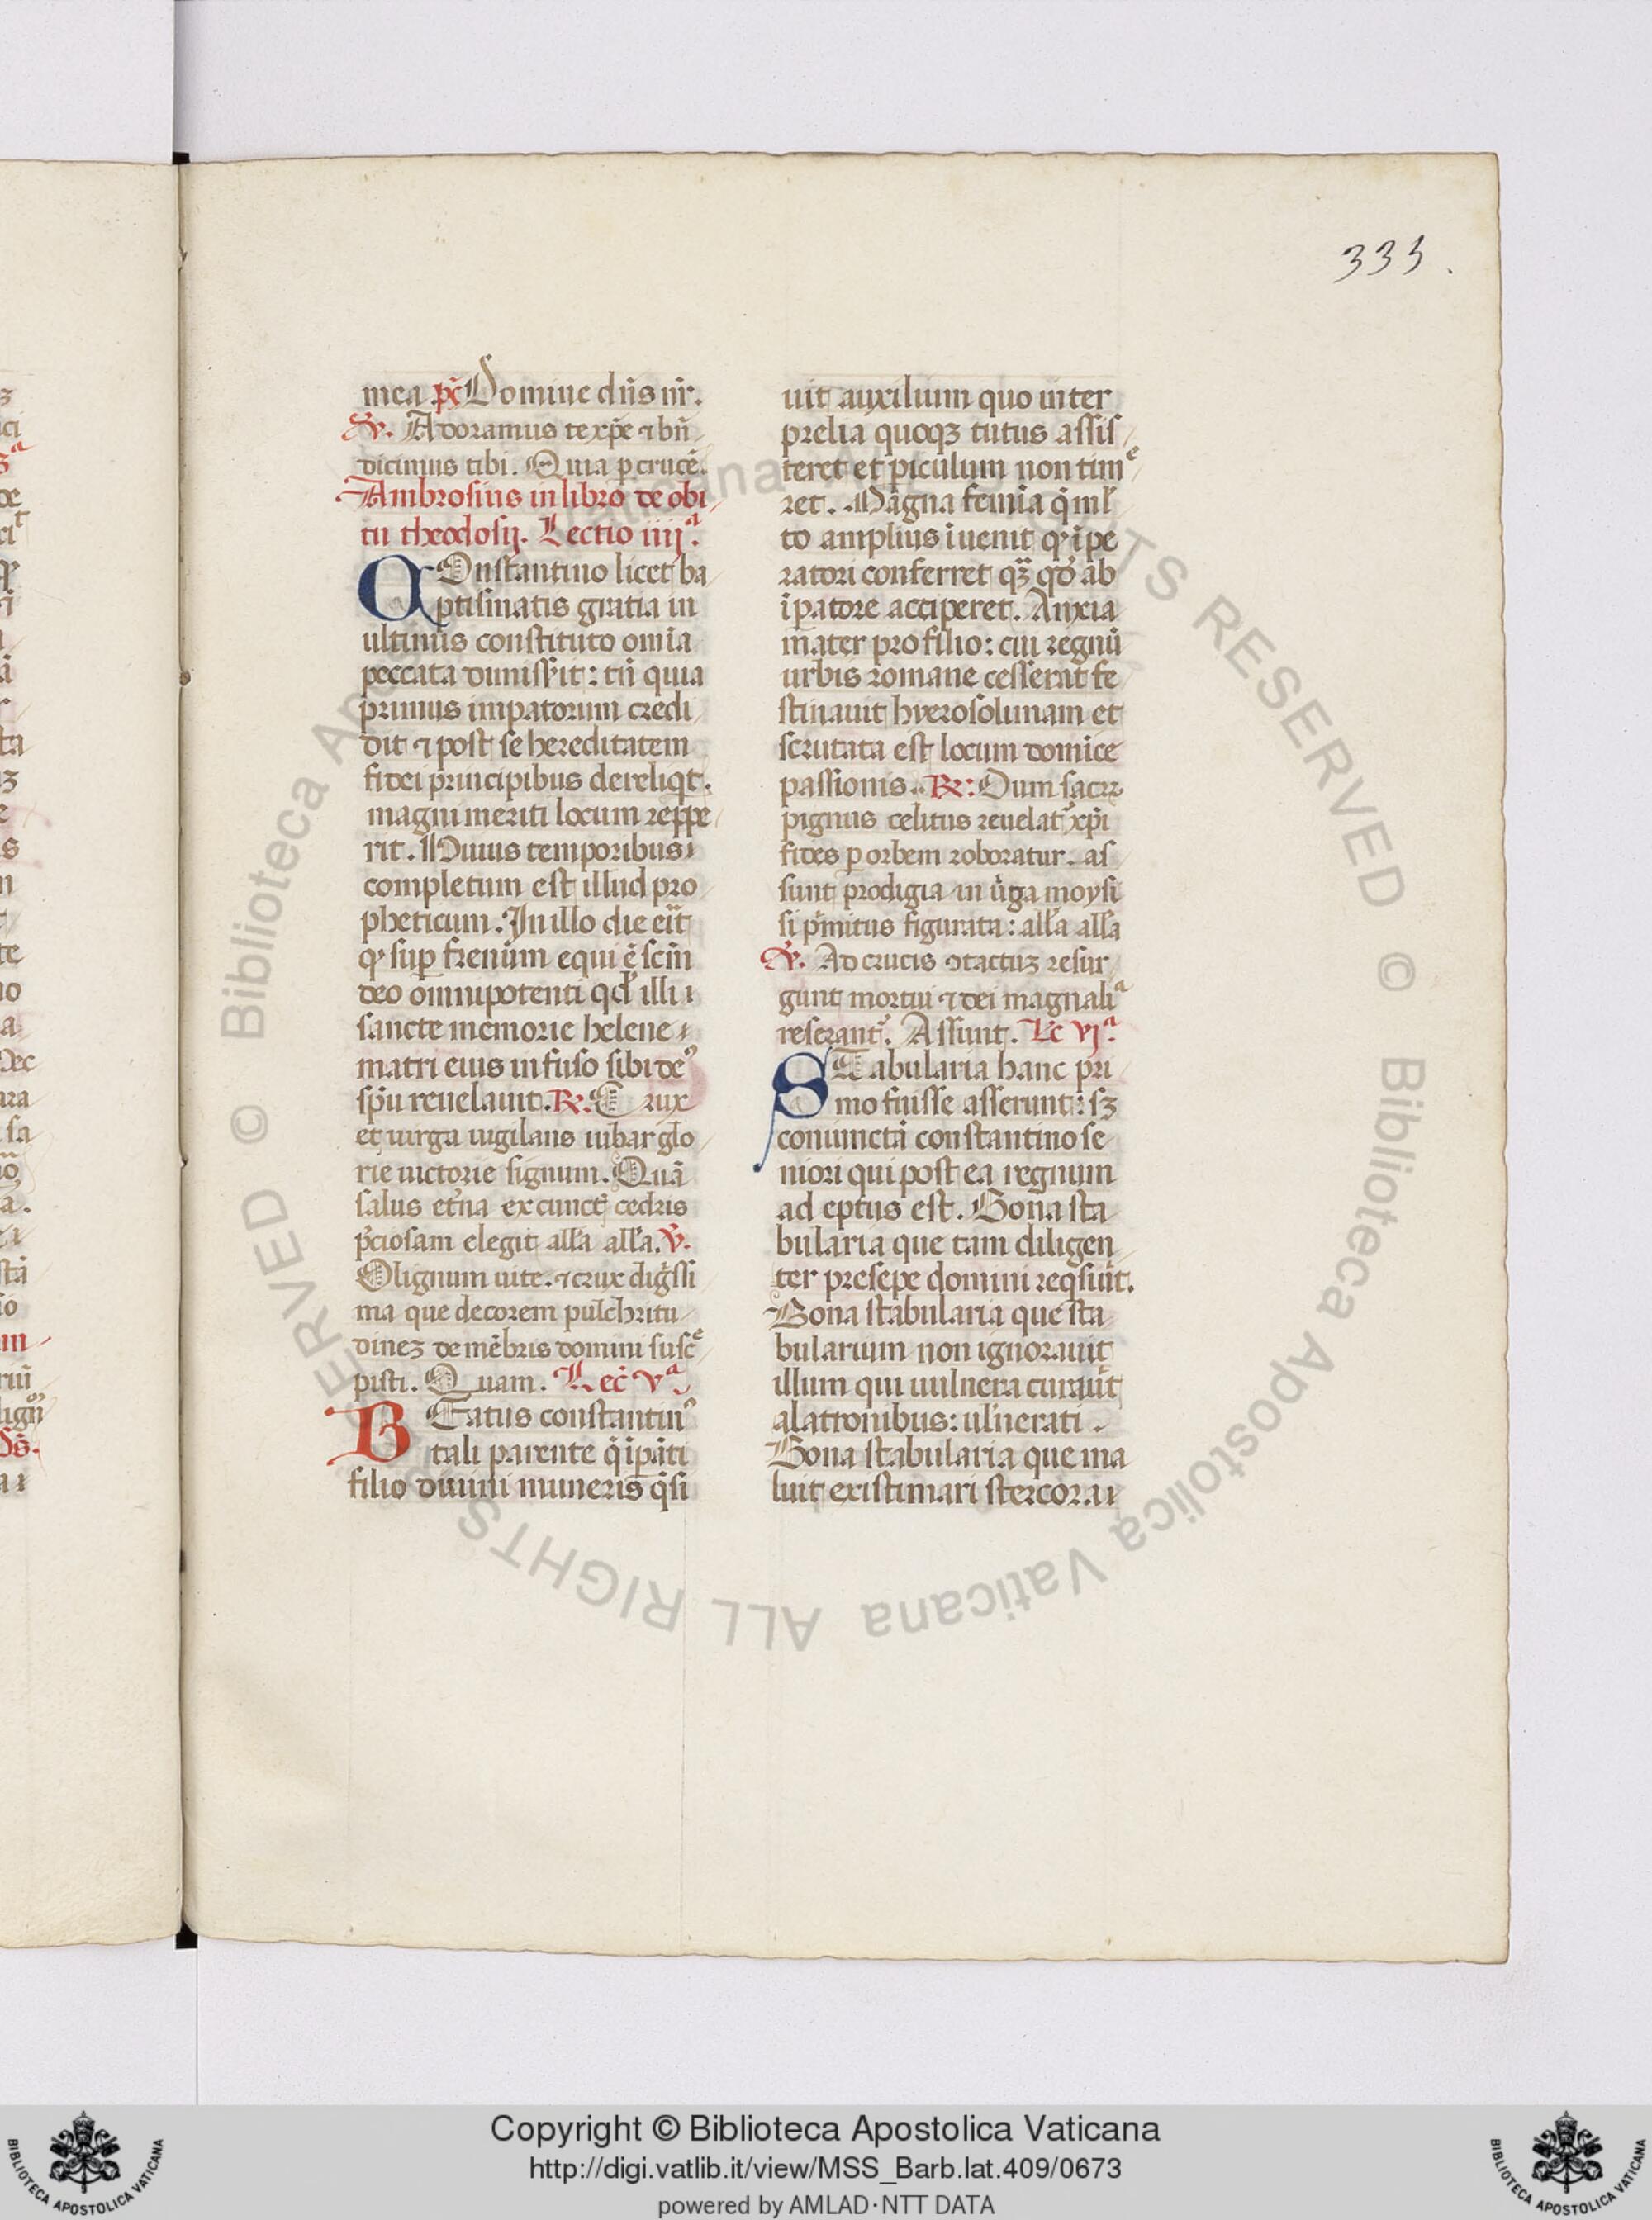 333.
mea ps̄ Domine dn̄s nr̄.
℣. Adoramus te xp̄e ⁊ bn̄
dicimus tibi. Quia ꝑ crucē.
Ambrosius in libro de obi
tu theodosij. Lectio iiijª.
COnstantino licet ba
ptismatis gratia in
ultimis constituto om̄ia
peccata dimisſit: tn̄ quia
primus impatorum credi
dit ⁊ post se hereditatem
fidei principibus dereliqt.
magni meriti locum reppe
rit. Huius temporibus
completum est illud pro
pheticum. In illo die erit
qꝰ suꝑ frenum equi ē scm̄
deo omnipotenti qd̓ illi
sancte memorie helene
matri eius infuso sibi deꝰ
spū reuelauit. ℞. Crux
et uirga uigilans iubar glo
rie uictorie signum. Quā
salus et̓na ex cunctꝭ cedris
p̄ciosam elegit all̓a all̓a. ℣.
O lignum uite. ⁊ crux digssi
ma que decorem pulchritu
dineꝫ de mēbris domini susce
pisti. Quam. Lec̄ vª.
BEatus constantinꝰ
tali parente q̄ īpāti
filio diuini muneris q̄si
uit auxilium quo inter
prelia quoqꝫ tutus assis
teret et ꝑiculum non time
ret. Magna femīa q̄ ml̓
to amplius īuenit qꝰ īpe
ratori conferret qꝫ qd̓ ab
īpatore acciperet. Anxia
mater pro filio: cui regnū
urbis romane cesserat fe
stinauit hyerosolimam et
scrutata est locum domīce
passionis. ℞: Dum sacrꝫ
pignus celitus reuelat᷑ xp̄i
fides ꝑ orbem roboratur. as
sunt prodigia in u̓ga moysi
si pͥmitus figurata: all̓a all̓a
℣. Ad crucis ↄtactuꝫ resur
gunt mortui ⁊ dei magnalia
reserant᷑. Assunt. Lc̄ vjª.
STabularia hanc pri
mo fuisse asserunt: sꝫ
coniunctā constantino se
niori qui post ea regnum
ad eptus est. Bona sta
bularia que tam diligen
ter presepe domini reqsiuit.
Bona stabularia que sta
bularium non ignorauit
illum qui uulnera curauit
alatronibus: ul̓nerati
Bona stabularia que ma
luit existimari stercora
Copyright © Biblioteca Apostolica Vaticana
http://digi.vatlib.it/view/MSS_Barb.lat.409/0673
powered by AMLAD·NTT DATA